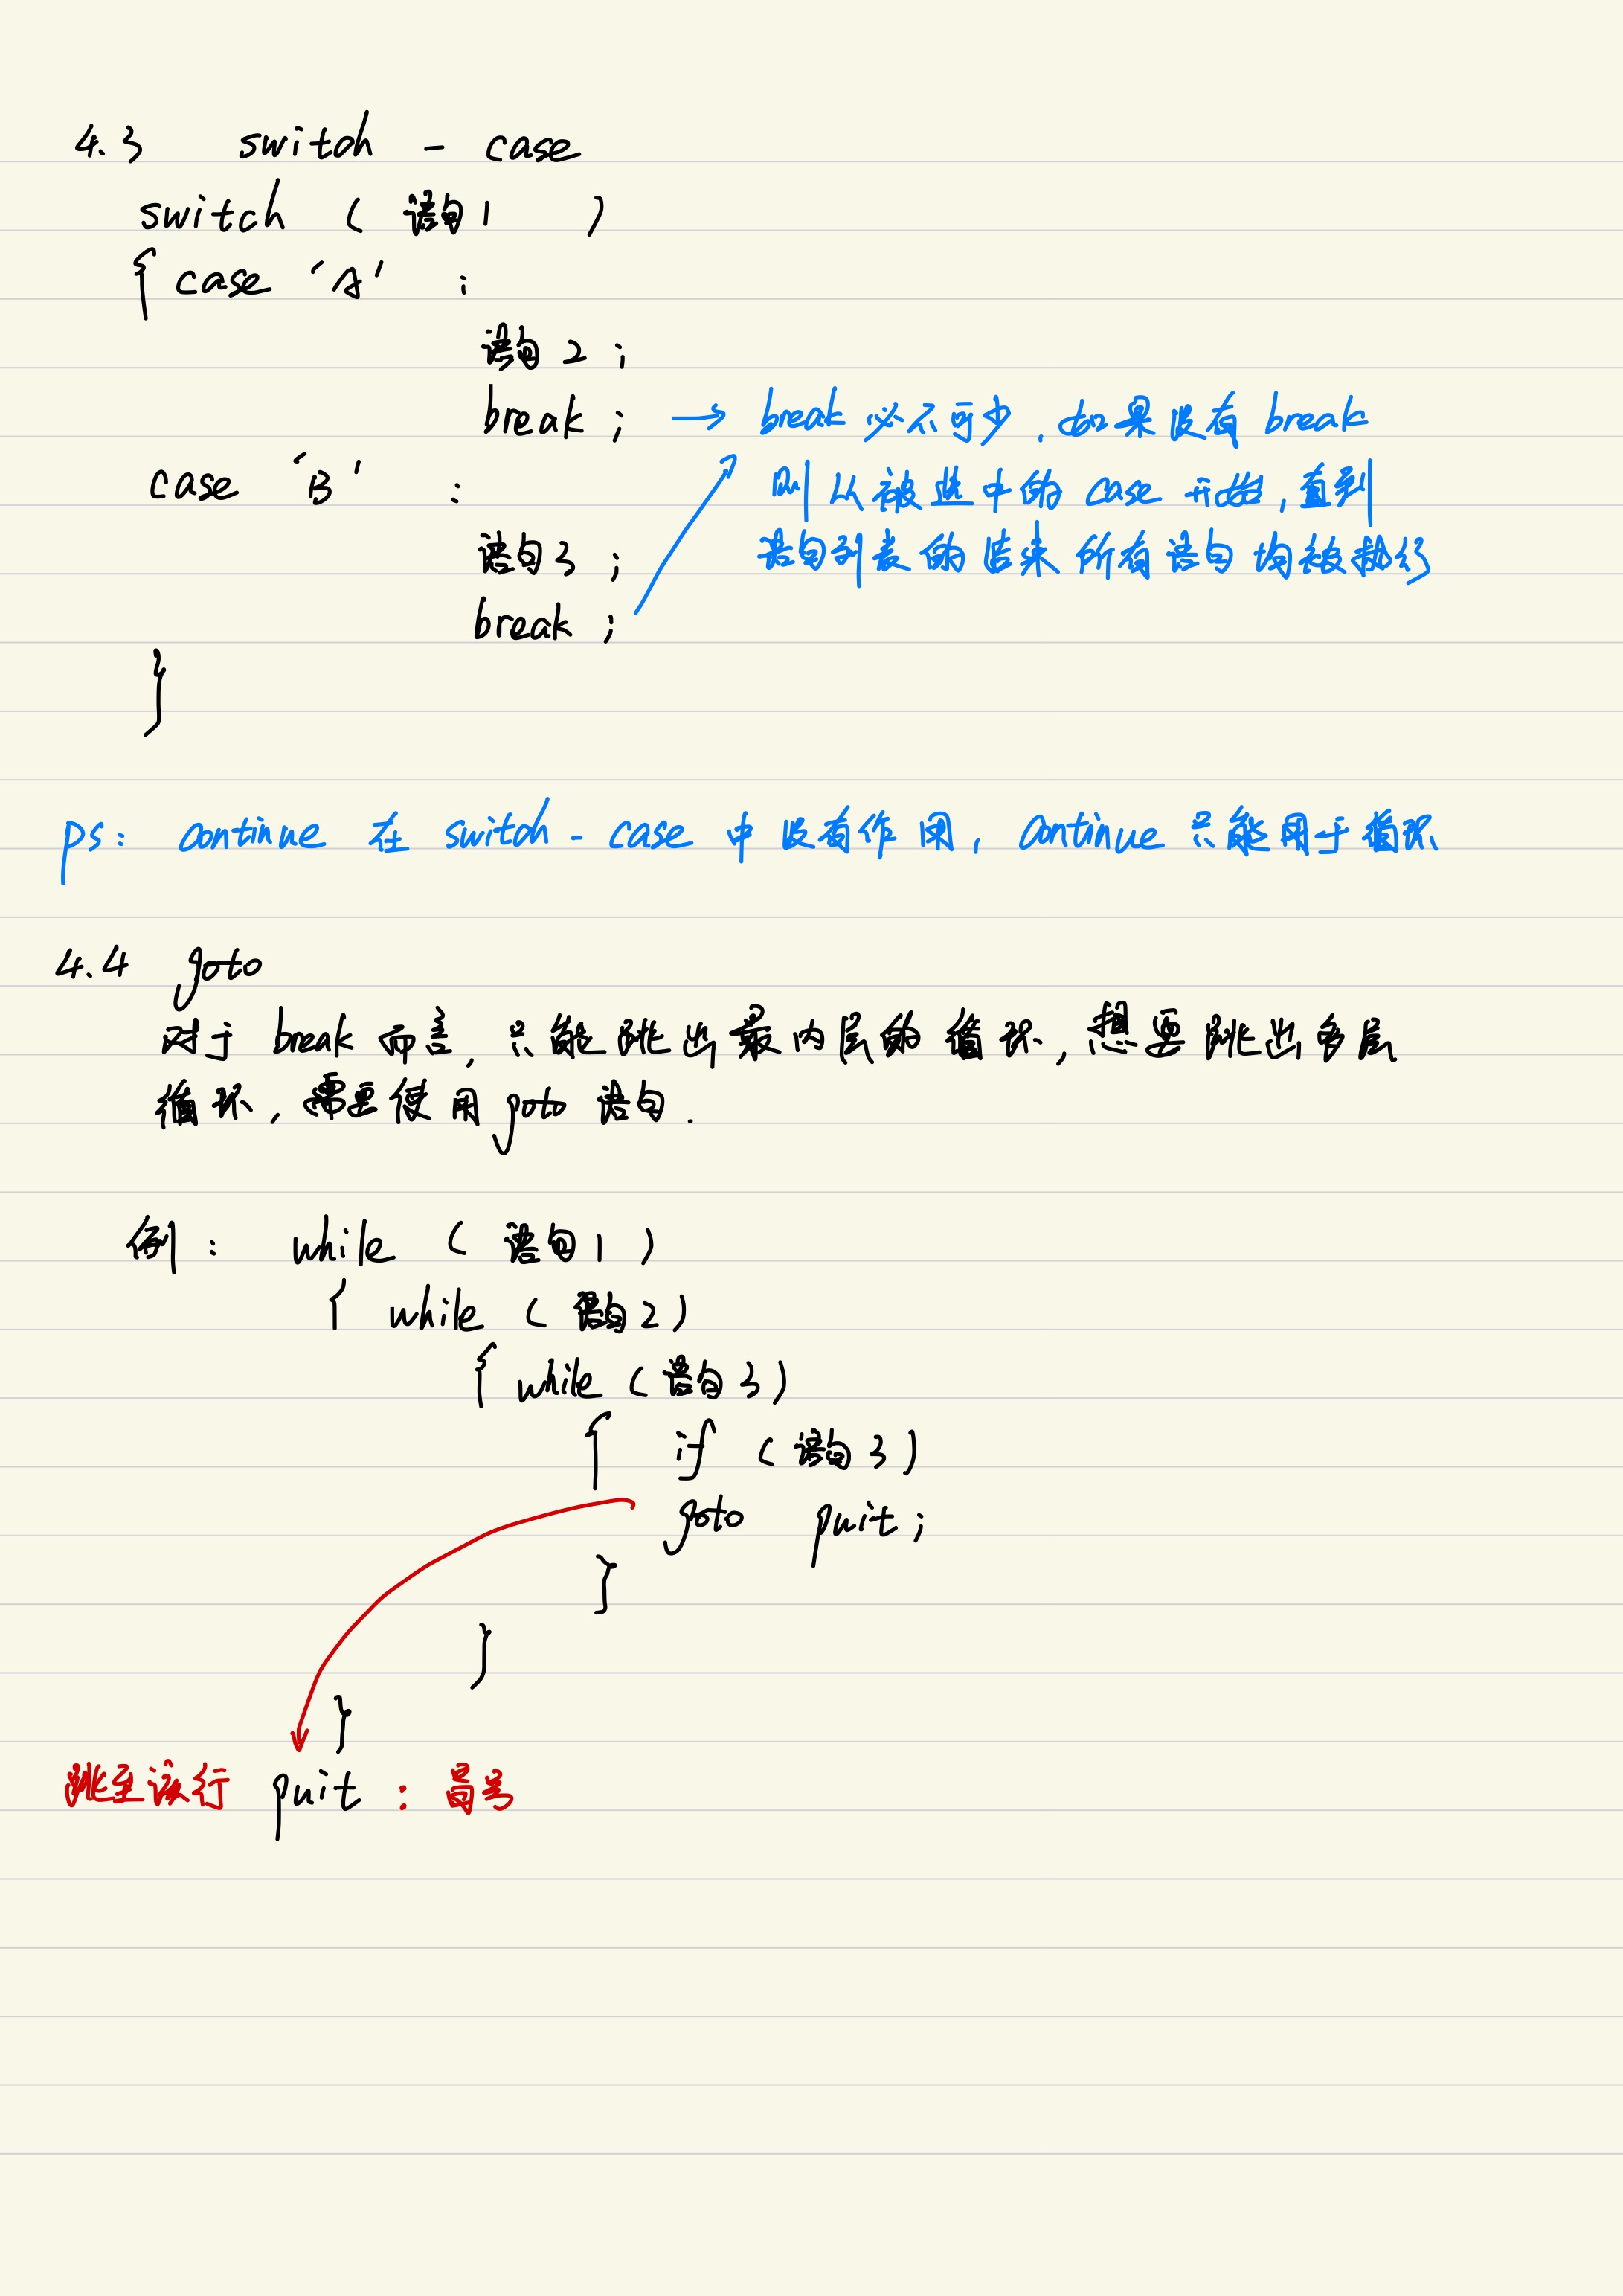 4.3 switch - case
switch ( 语句1 )
{ case 'A' :
语句2 ;
break ; → break 必不可少, 如果没有 break
case 'B' : 则从被选中的 case 开始, 直到
语句3 ; 语句列表的结束所有语句均被执行
break ;
}
ps: continue 在 switch - case 中没有作用, continue 只能用于循环
4.4 goto
对于 break 而言, 只能跳出最内层的循环, 想要跳出多层
循环, 需要使用 goto 语句.
例: while ( 语句1 )
{ while ( 语句2 )
{ while ( 语句3 )
{ if ( 语句3 )
goto quit ;
}
}
}
跳至该行 quit : 冒号